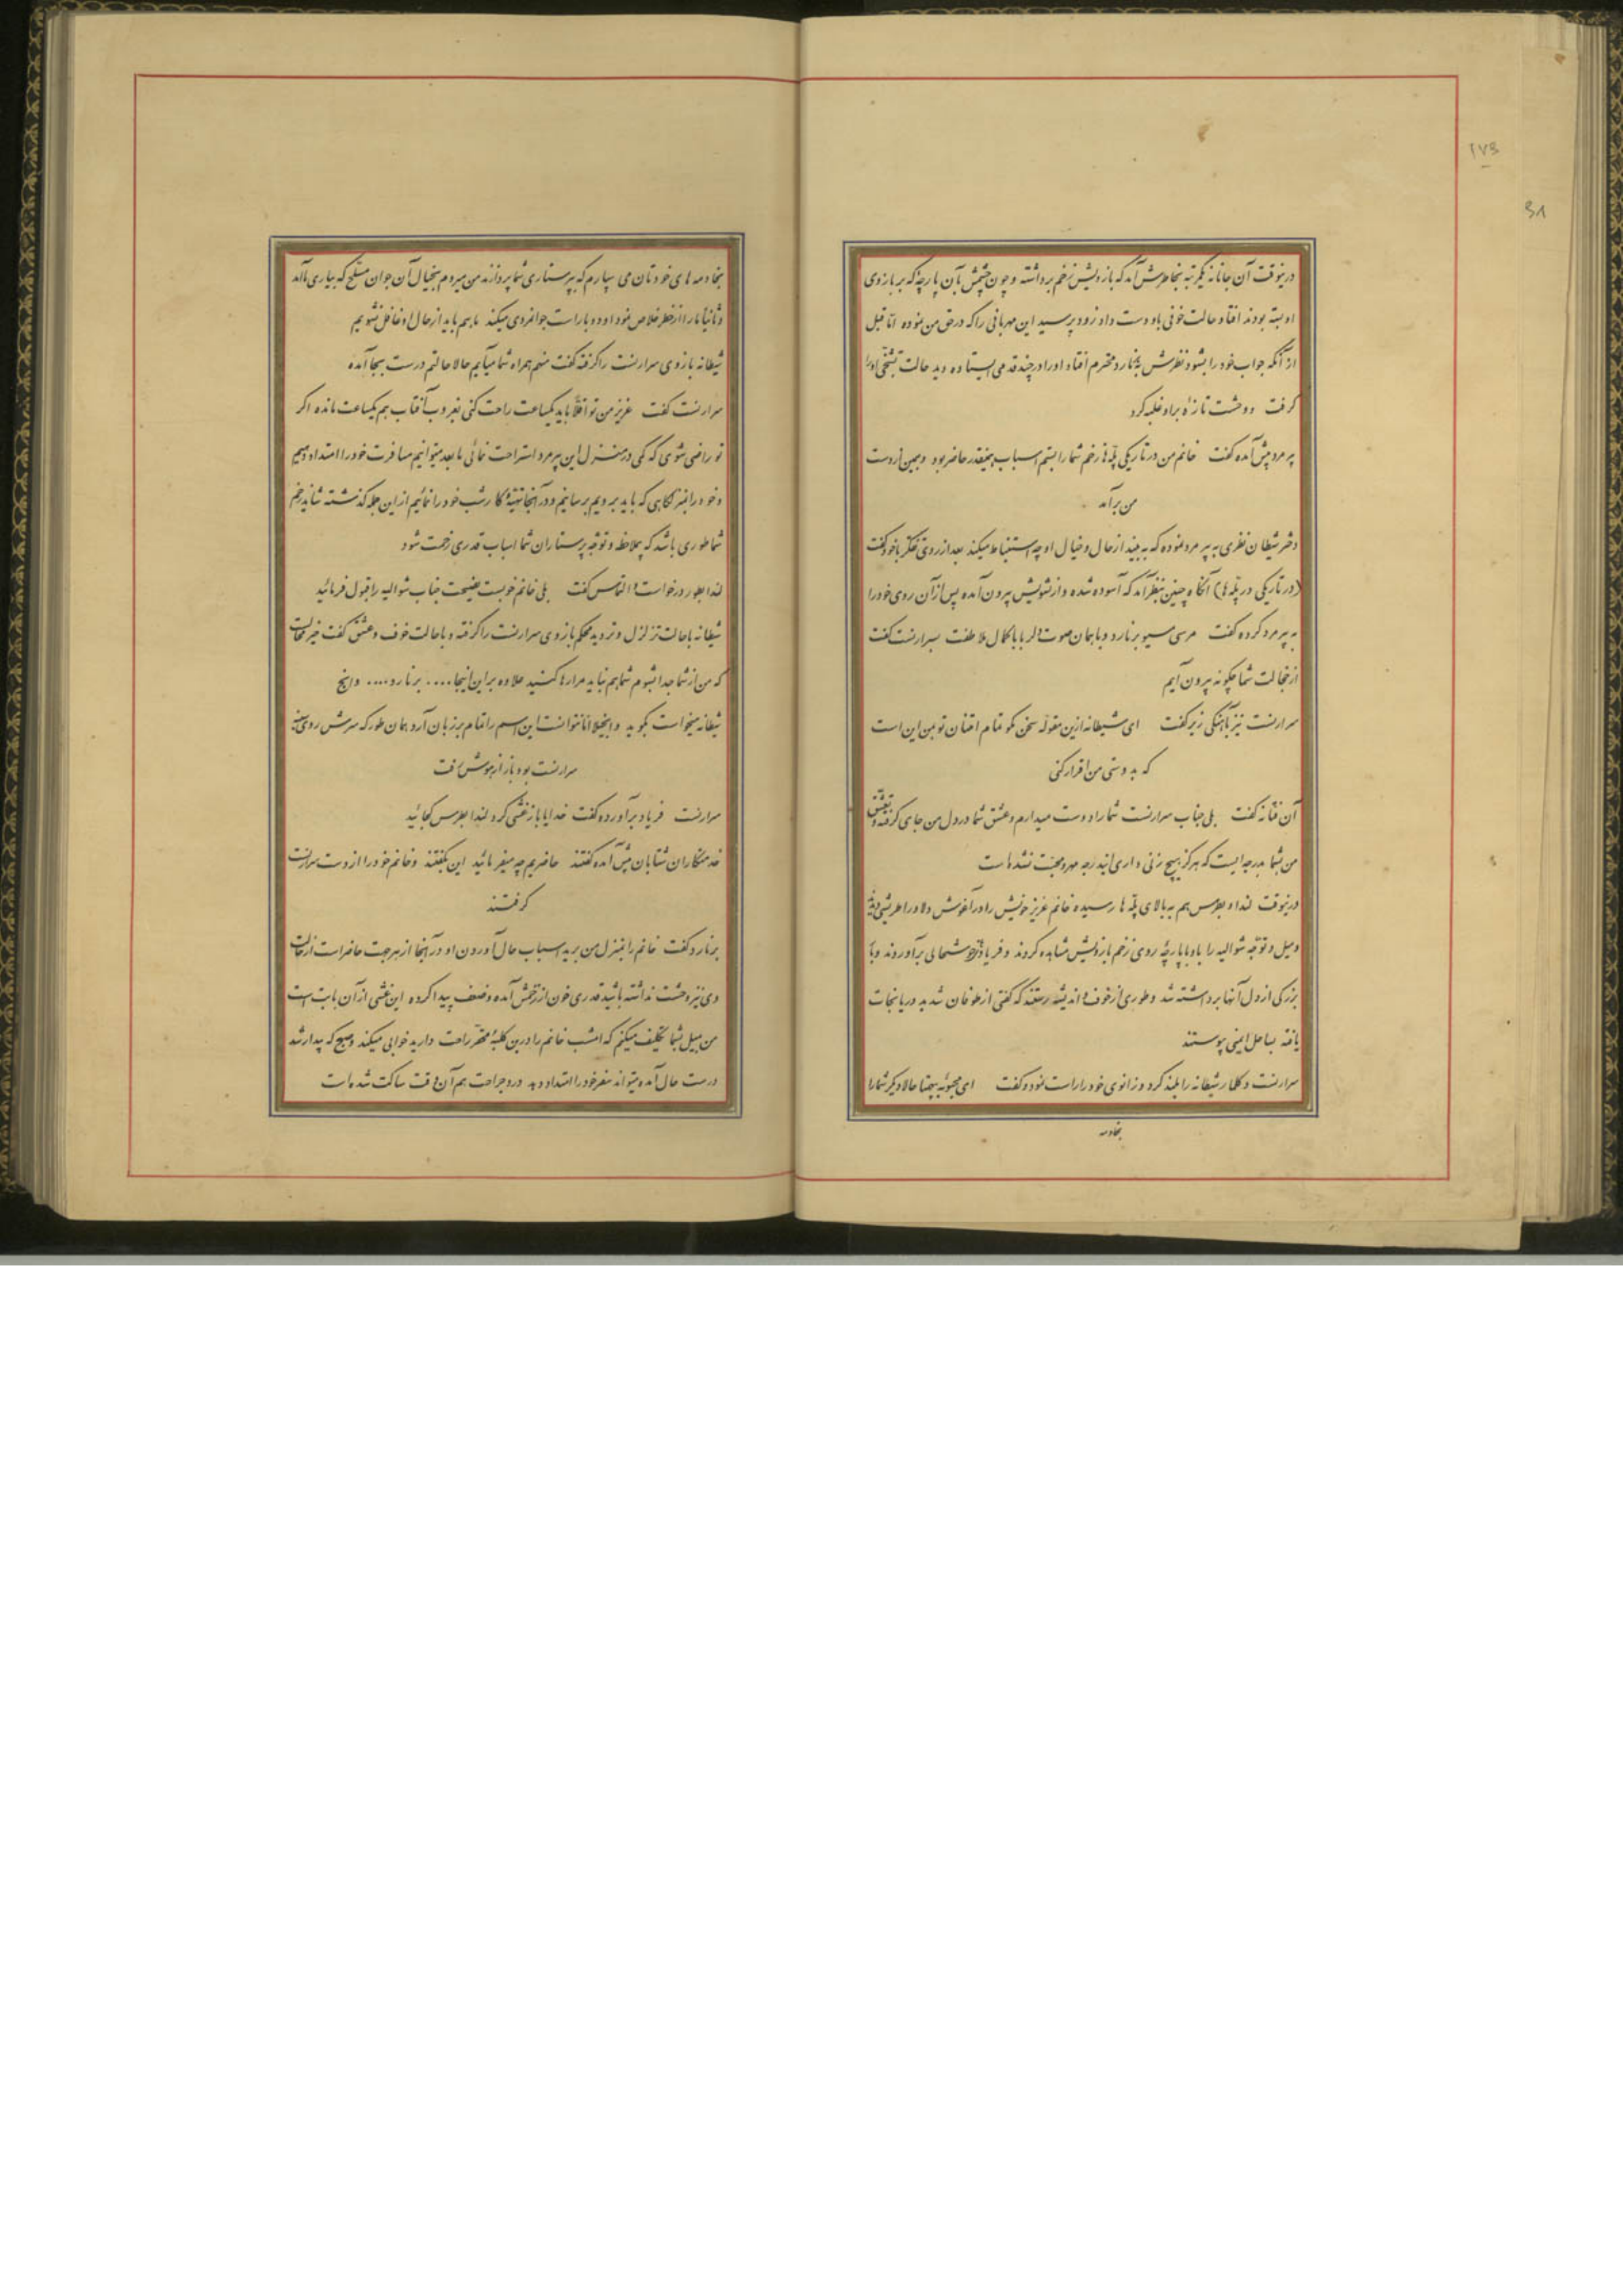 ۱۷۳
۳۸
درینوقت آن جانانه یکمرتبه بخاطرش آمد که بازویش زخم برداشته و چون چشمش بآن پارچه که بر بازوی
او بسته بودند افتاد حالت خوفی باو دست داد زود پرسید این مهربانی را که در حق من نموده اما قبل
از آنکه جواب خود را بشنود نظرش به برنارد محترم افتاد او را در چند قدمی ایستاده دید حالت تشنجی او را
گرفت و وحشت تازهٔ بر او غلبه کرد
پیرمرد پیش آمده گفت خانم من در تاریکی پله‌ها زخم شما را بستم اسباب همینقدر حاضر بود و همین از دست
من برآمد
دختر شیطان نظری به پیرمرد نموده که به بیند از حال و خیال او چه استنباط میکند بعد از روی تفکر با خود گفت
(در تاریکی در پله‌ها) آنگاه چنین بنظر آمد که آسوده شده و از تشویش بیرون آمده پس از آن روی خود را
به پیرمرد کرده گفت مرسی مسیو برنارد و با همان صوت دلربا با کمال ملاطفت بسرارنست گفت
از خجالت شما چگونه بیرون آیم
سرارنست نیز بآهنگی زیر گفت ای شیطانه ازین مقوله سخن مگو تمام امتنان تو بمن این است
که بدوستی من اقرار کنی
آن فتانه گفت بلی جناب سرارنست شما را دوست میدارم و عشق شما در دل من جای گرفته و تعشق
من بشما بدرجه ایست که هرگز بهیچ زنی داری اینقدرجه مهر و محبت نشده است
درینوقت لندا و بطرس هم به بالای پله‌ها رسیده خانم عزیز خویش را در آغوش دلاور اطریشی دیده
و میل و توجه شوالیه را باو با پارچه روی زخم بازویش مشاهده کردند و فریاد خوشحالی برآوردند و بار
بزرگی از دل آنها برداشته شد و طوری از خوف و اندیشه رستند که گفتی از طوفان شدید دریا نجات
یافته بساحل ایمنی پیوستند
سرارنست دکلمار شیطانه را بلند کرد و زانوی خود را راست نمود و گفت ای محبوبهٔ بیهمتا حالا دیگر شما را
بخادمه
بخادمه های خودتان می سپارم که بپرستاری شما پردازند من میروم بخیال آن جوان مسلح که بیاری ما آمد
و ثانیاً ما را از خطر خلاص نمود او دوباره است جوانمردی میکند ما هم باید از حال او غافل نشویم
شیطانه بازوی سرارنست را گرفته گفت منهم همراه شما میآیم حالا حالتم درست بجا آمده
سرارنست گفت عزیز من تو اقلاً باید یکساعت راحت کنی بغروب آفتاب هم یکساعت مانده اگر
تو راضی شوی که کمی در منزل این پیرمرد استراحت نمائی ما بعد میتوانیم مسافرت خود را امتداد دهیم
و خود را بمنزلگاهی که باید برویم برسانیم و در آنجا تهیهٔ کار شب خود را نمائیم از این جمله گذشته شاید زخم
شما طوری باشد که بملاحظه و توجه پرستاران شما اسباب قدری زحمت شود
لندا بطور درخواست و التماس گفت بلی خانم خوبست نصیحت جناب شوالیه را قبول فرمائید
شیطانه با حالت تزلزل و تردید محکم بازوی سرارنست را گرفته و با حالت خوف و عشق گفت خیر محالست
که من از شما جدا بشوم شما هم نباید مرا رها کنید علاوه براین اینجا .... برنارد .... و اینخ
شیطانه میخواست بگوید و اینخیلا اما نتوانست این اسم را تمام بر زبان آرد همان طور که سرش روی سینه
سرارنست بود باز از هوش رفت
سرارنست فریاد برآورده گفت خدایا باز غشی کرد لندا بطرس کجائید
خدمتکاران شتابان پیش آمده گفتند حاضریم چه میفرمائید این بگفتند و خانم خود را از دست سرارنست
گرفتند
برنارد گفت خانم را بمنزل من برید اسباب حال آوردن او در آنجا از هر جهت حاضر است از حالت
وی نیز وحشت نداشته باشید قدری خون از زخمش آمده و ضعف پیدا کرده این غشی از آن بابت است
من بمیل بشما تکلیف میکنم که امشب خانم را درین کلبهٔ محقر راحت دارید خوابی میکند و صبح که بیدار شد
درست حال آمده میتواند سفر خود را امتداد دهد درد جراحت هم آن وقت ساکت شده است